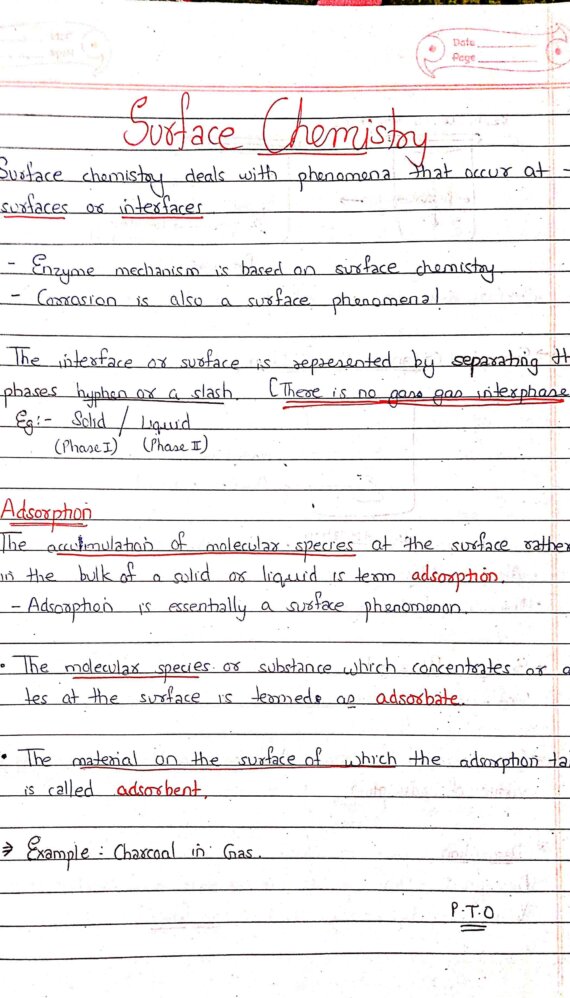 Date
Page
Surface Chemistry
Surface chemistry deals with phenomena that occur at -
surfaces or interfaces
- Enzyme mechanism is based on surface chemistry.
- Corrosion is also a surface phenomena!
The interface or surface is represented by separating th
phases hyphen or a slash. [There is no gas gas interphase
Eg:- Solid / Liquid
(Phase I) (Phase II)
Adsorption
The accumulation of molecular species at the surface rather
in the bulk of a solid or liquid is term adsorption.
- Adsorption is essentially a surface phenomenon.
• The molecular species or substance which concentrates or a
tes at the surface is termed as adsorbate.
• The material on the surface of which the adsorption ta
is called adsorbent.
⇒ Example : Charcoal in Gas.
P.T.O